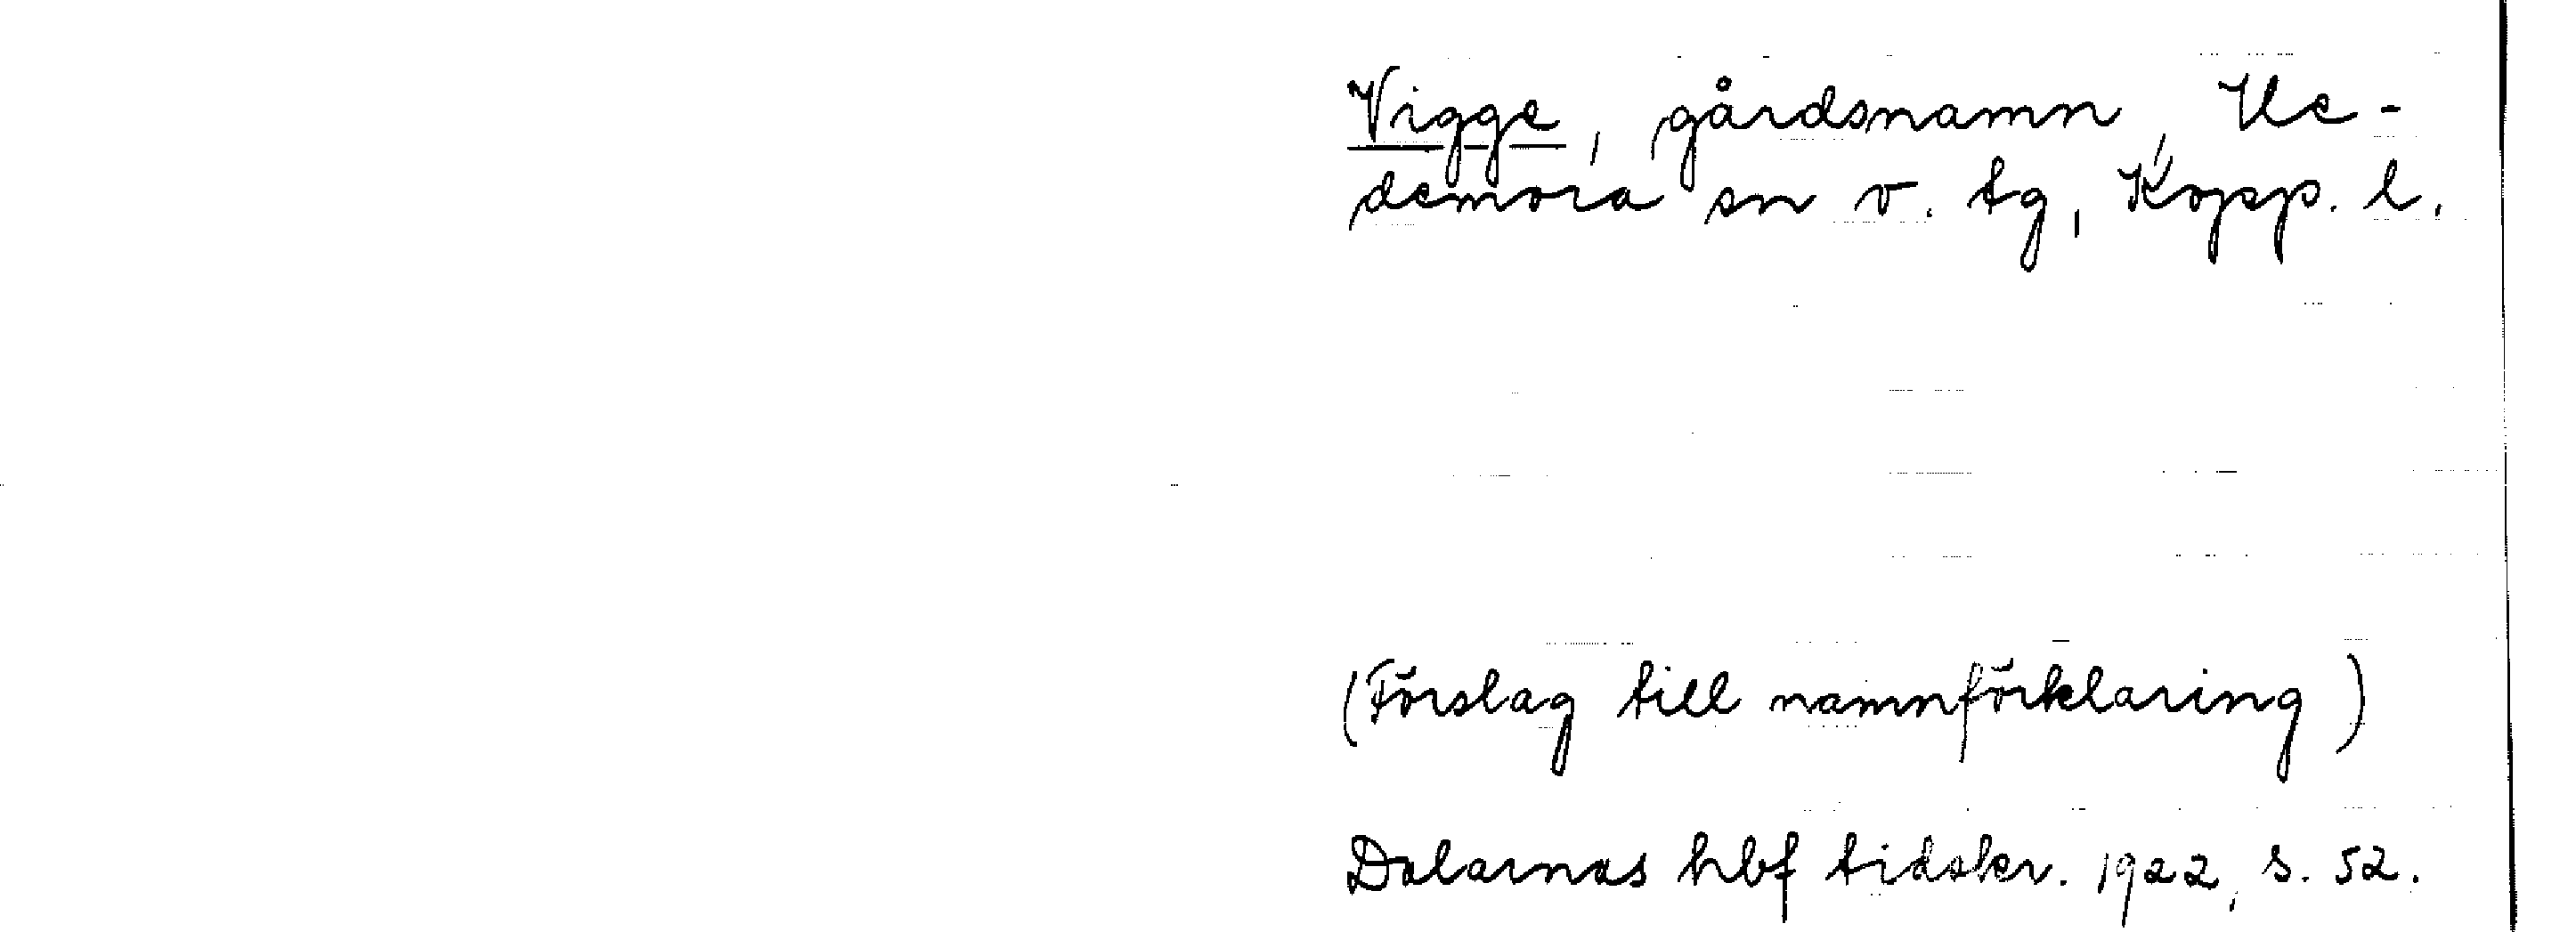 Vigge, gårdsnamn, He-
demora sn v. tg, Kopp. l.
(Förslag till namnförklaring)
Dalarnas hbf tidskr. 1922, s. 52.